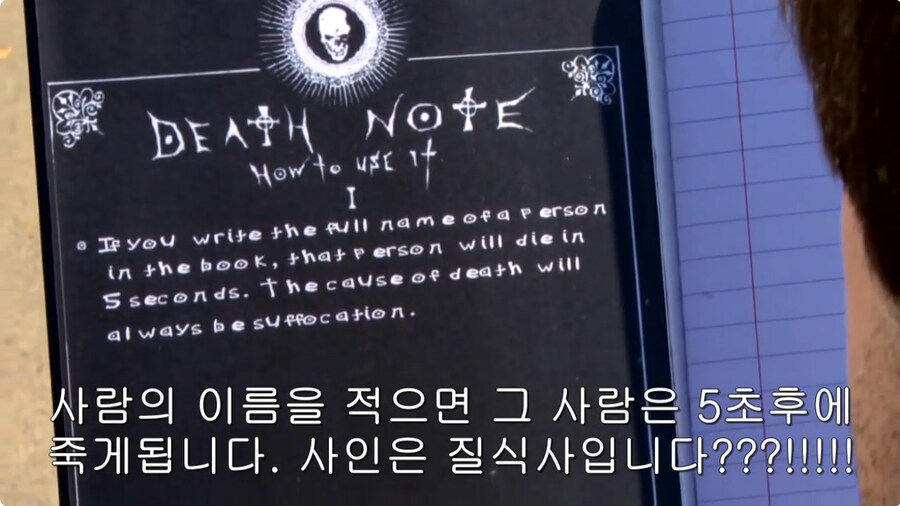 DEATH NOTE
How to use it
I
If you write the full name of a person
in the book, that person will die in
5 seconds. The cause of death will
always be suffocation.
사람의 이름을 적으면 그 사람은 5초후에
죽게됩니다. 사인은 질식사입니다???!!!!!